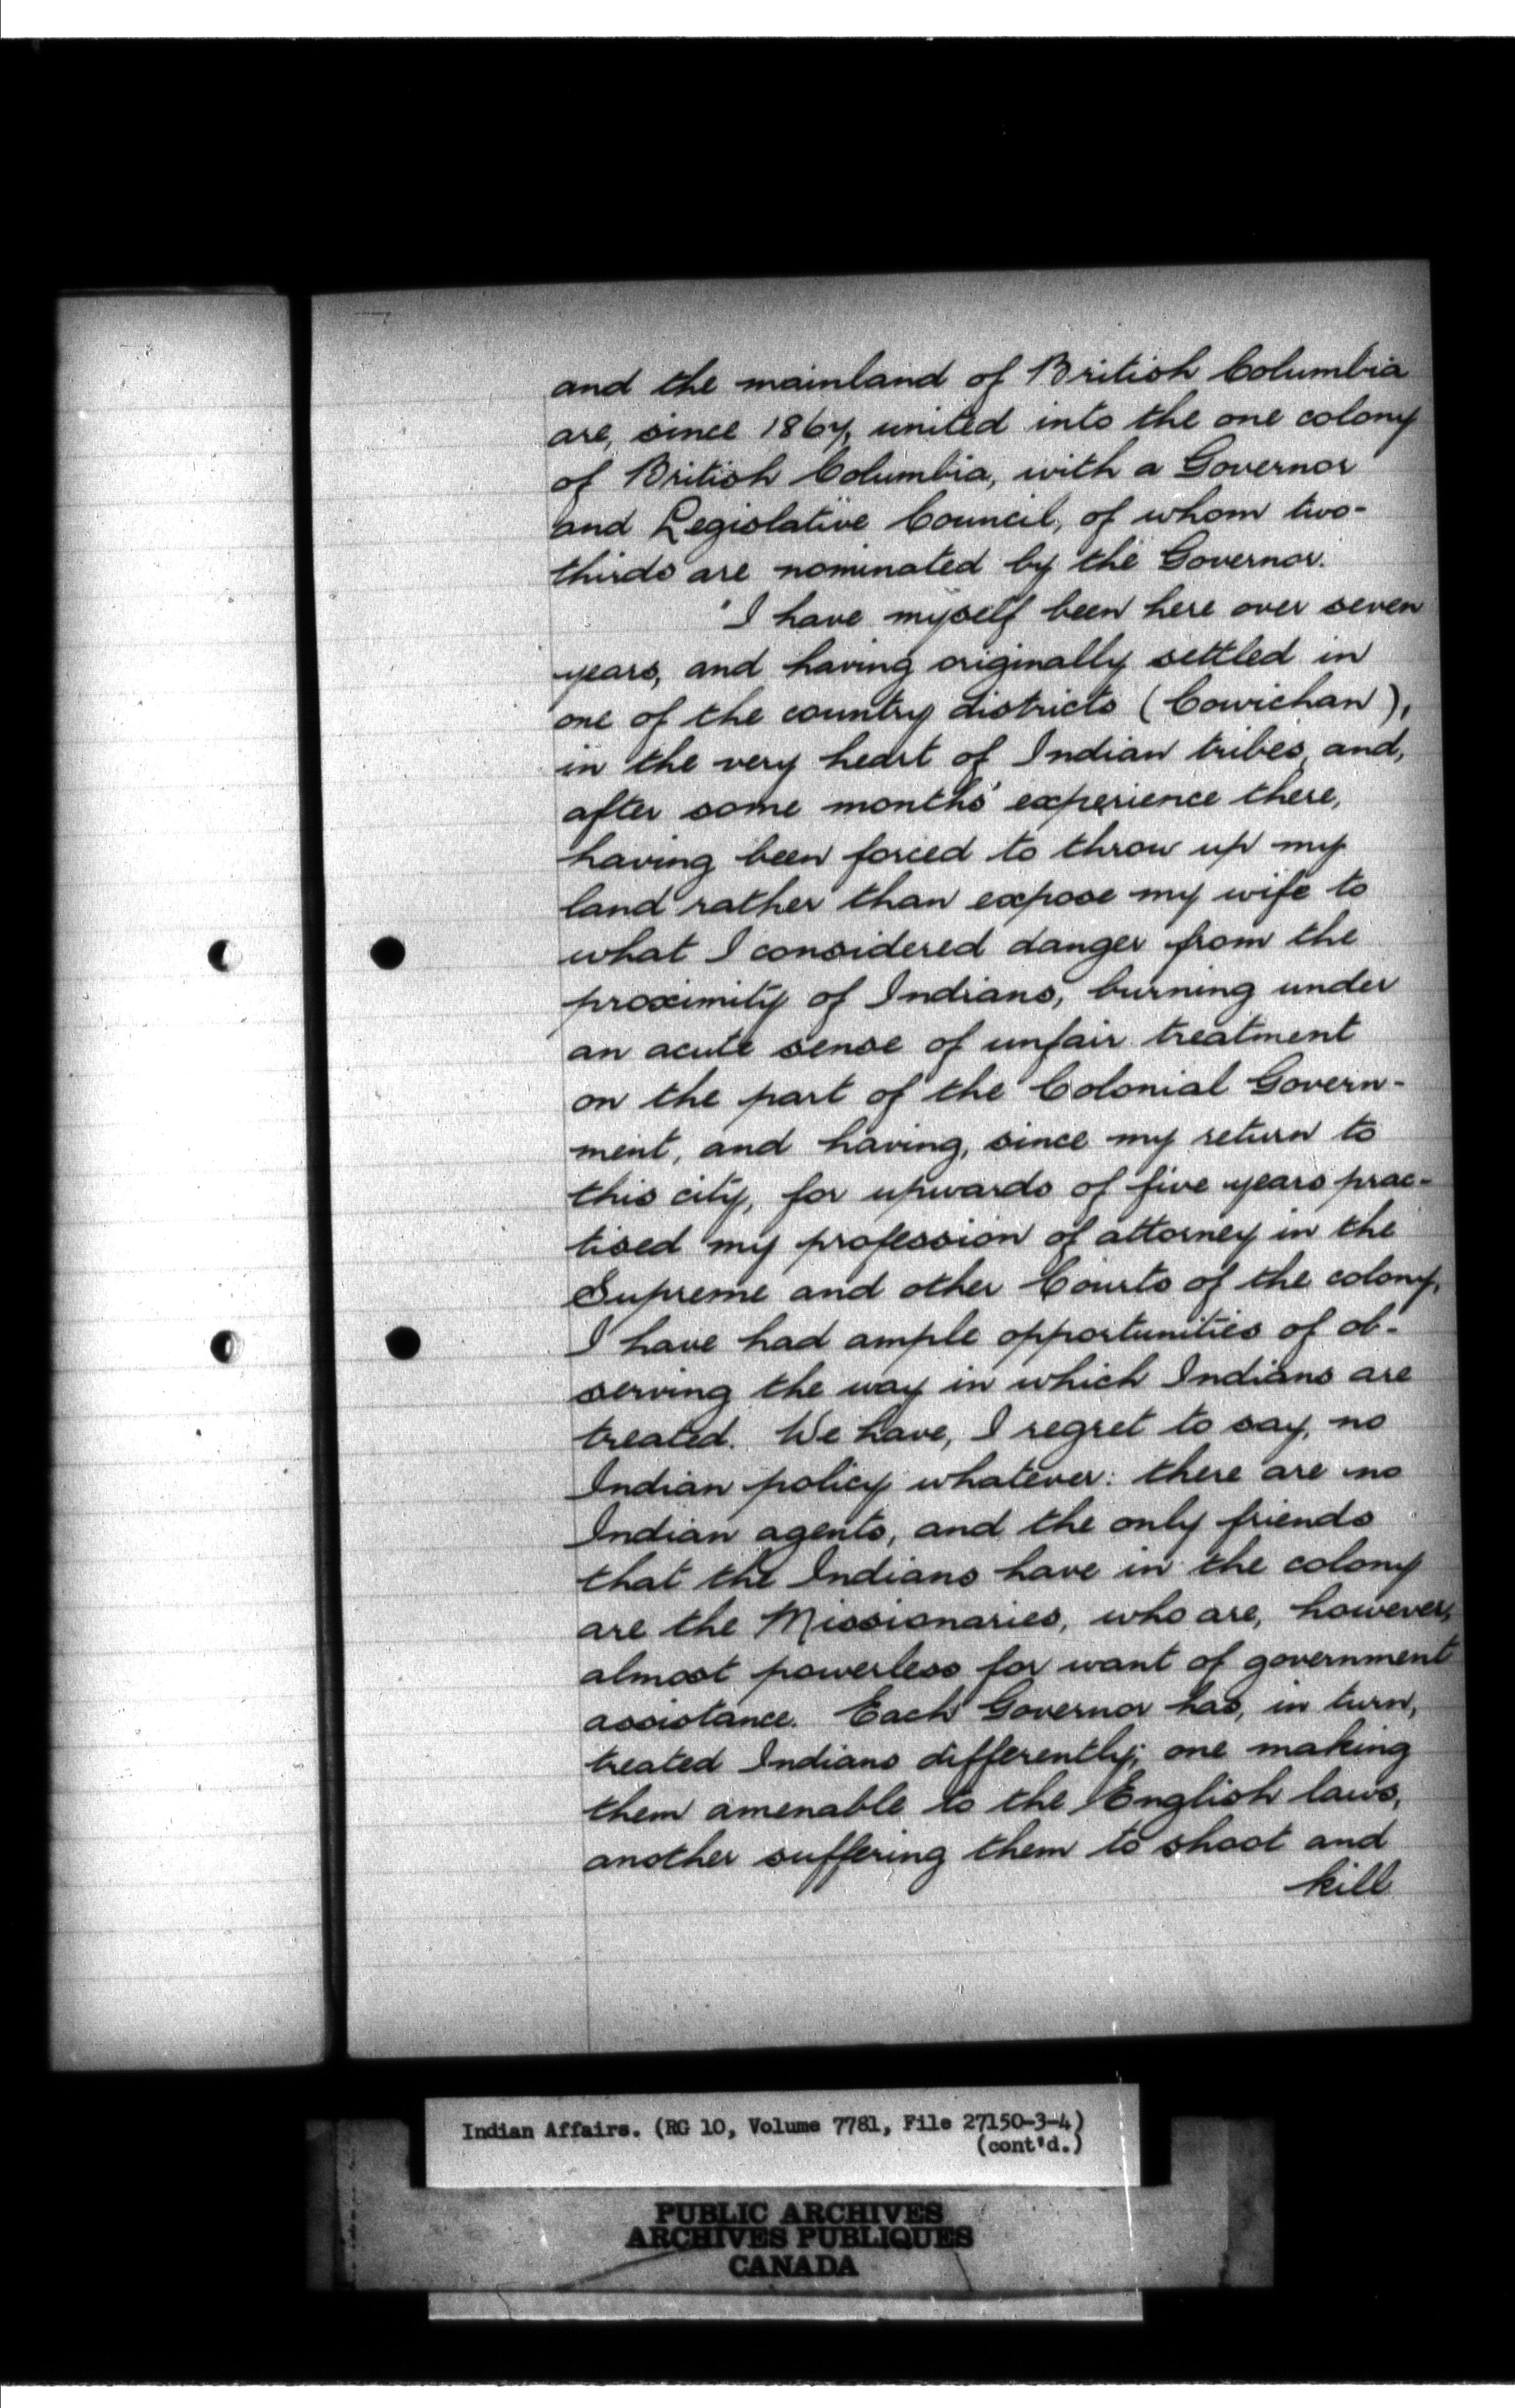 and the mainland of British Columbia
are, since 1867, united into the one colony
of British Columbia, with a Governor
and Legislative Council, of whom two-
thirds are nominated by the Governor.
'I have myself been here over seven
years, and having originally settled in
one of the country districts (Cowichan),
in the very heart of Indian tribes, and,
after some months' experience there,
having been forced to throw up my
land rather than expose my wife to
what I considered danger from the
proximity of Indians, burning under
an acute sense of unfair treatment
on the part of the Colonial Govern-
ment, and having, since my return to
this city, for upwards of five years prac-
tised my profession of attorney in the
Supreme and other Courts of the colony,
I have had ample opportunities of ob-
serving the way in which Indians are
treated. We have, I regret to say, no
Indian policy whatever: there are no
Indian agents, and the only friends
that the Indians have in the colony
are the Missionaries, who are, however,
almost powerless for want of government
assistance. Each Governor has, in turn,
treated Indians differently; one making
them amenable to the English laws,
another suffering them to shoot and
kill
Indian Affairs. (RG 10, Volume 7781, File 27150-3-4)
(cont'd.)
PUBLIC ARCHIVES
ARCHIVES PUBLIQUES
CANADA